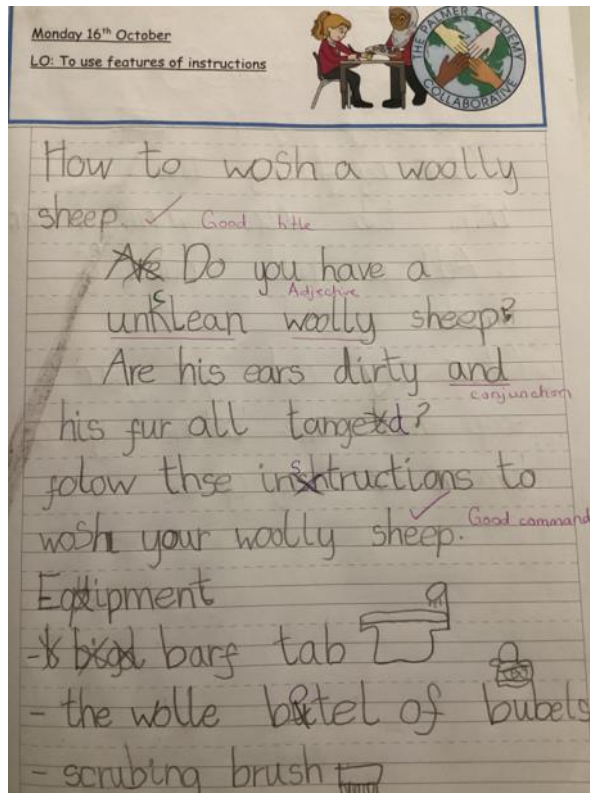 Monday 16th October
LO: To use features of instructions
THE PALMER ACADEMY
COLLABORATIVE
How to wosh a woolly
sheep. ✓ Good title
Do you have a
Adjective
unclean woolly sheep?
Are his ears dirty and
conjunction
his fur all tanged?
folow thse instructions to
wosh your woolly sheep. ✓ Good command
Equipment
- barf tab
- the wolle botel of bubels
- scrubing brush